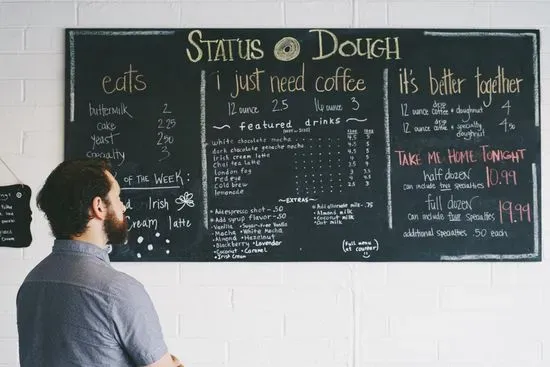 STATUS DOUGH
eats
buttermilk 2
cake 2.25
yeast 2.50
specialty 3
OF THE WEEK:
Irish
Cream latte
i just need coffee
12 ounce 2.5 16 ounce 3
~ featured drinks ~
white chocolate mocha
dark chocolate ganache mocha
irish cream latte
chai tea latte
london fog
red eye
cold brew
lemonade
~ EXTRAS ~
Add espresso shot - .50
Add syrup flavor - .50
Vanilla Sugar-free Vanilla
Mocha White Mocha
Almond Hazelnut
Blackberry Lavender
Coconut Caramel
Irish Cream
Add alternate milk - .75
Almond milk
Coconut milk
Oat milk
(Full menu
at counter)
it's better together
12 ounce drip coffee + doughnut 4
12 ounce drip coffee + specialty doughnut 4.50
TAKE ME HOME TONIGHT
half dozen 10.99
can include two specialties
full dozen 19.99
can include four specialties
additional specialties .50 each